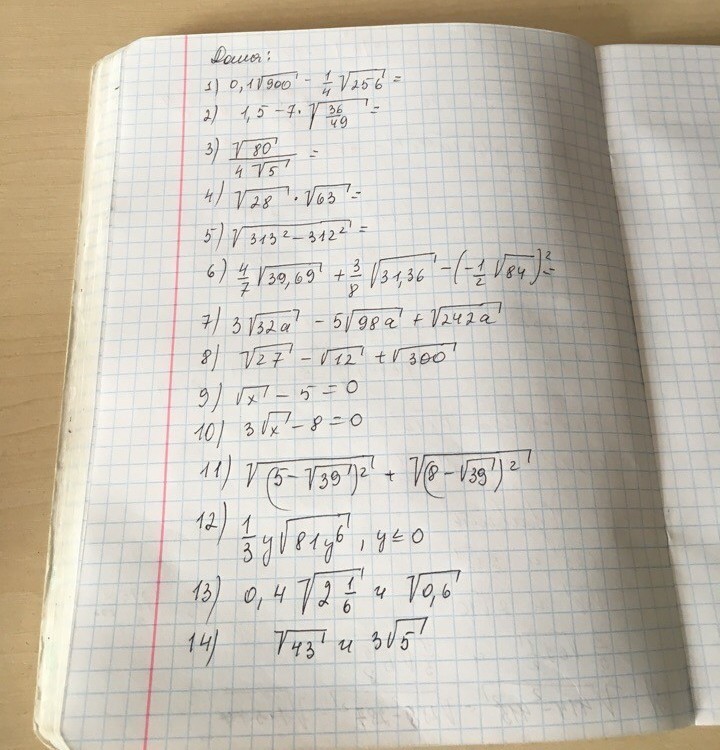 Дома:
1) 0,1√900 - 1/4 √256 =
2) 1,5 - 7 · √(36/49) =
3) √80 / (4√5) =
4) √28 · √63 =
5) √(313² - 312²) =
6) 4/7 √39,69 + 3/8 √31,36 - (-1/2 √84)² =
7) 3√(32a) - 5√(98a) + √(242a)
8) √27 - √12 + √300
9) √x - 5 = 0
10) 3√x - 8 = 0
11) √((5 - √39)²) + √((8 - √39)²)
12) 1/3 y√(81y⁶), y ≤ 0
13) 0,4 √(2 1/6) и √0,6
14) √43 и 3√5